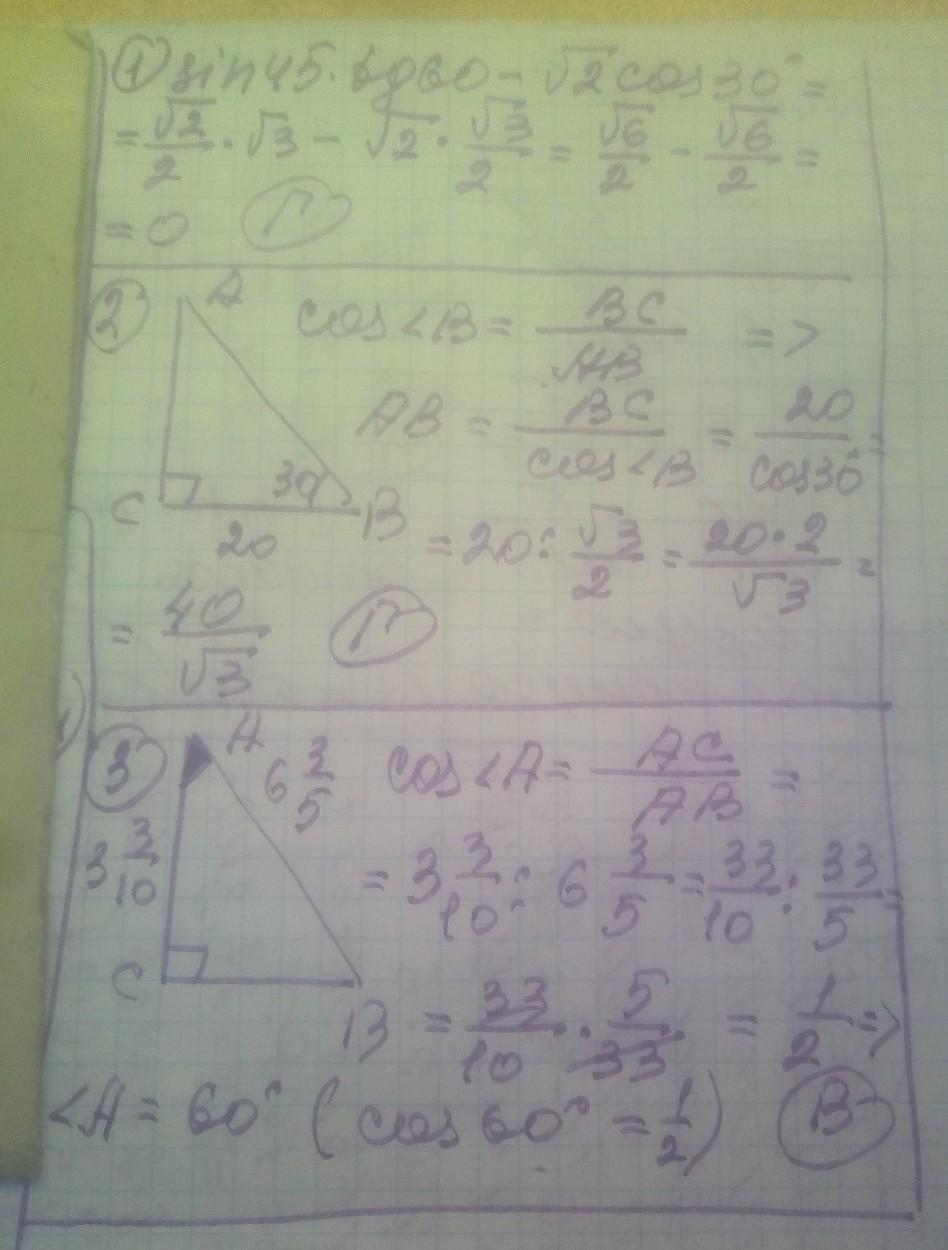 ① sin45·tg60 - √2cos30° =
= √2/2 · √3 - √2 · √3/2 = √6/2 - √6/2 =
= 0 Г
② A cos<B = BC/AB =>
AB = BC/cos<B = 20/cos30° =
C 30° B
20
= 20 : √3/2 = 20·2/√3 =
= 40/√3 Г
③ A 6 3/5 cos<A = AC/AB =
3 3/10 = 3 3/10 : 6 3/5 = 33/10 : 33/5 =
C
B = 33/10 · 5/33 = 1/2 =>
<A = 60° (cos60° = 1/2) В